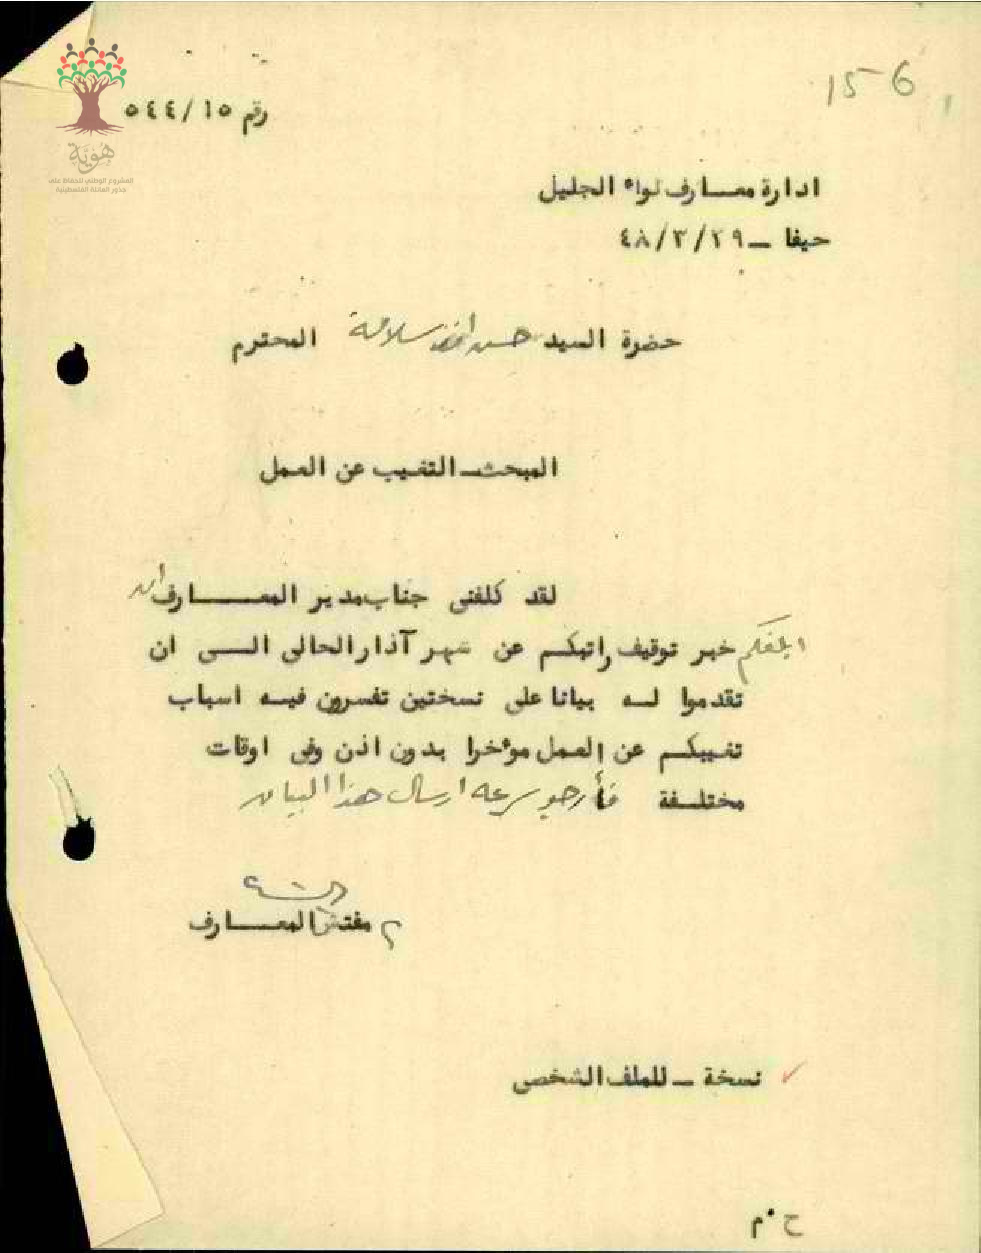 156
رقم ٥٤٤/١٥
هوية
المشروع الوطني للحفاظ على
جذور العائلة الفلسطينية
ادارة معارف لواء الجليل
حيفا - ٤٨/٣/٢٩
حضرة السيد حسن سلامة المحترم
المبحث - التغيب عن العمل
لقد كلفني جناب مدير المعارف ان
ابلغكم خبر توقيف راتبكم عن شهر آذار الحالي الى ان
تقدموا له بيانا على نسختين تفسرون فيه اسباب
تغيبكم عن العمل مؤخرا بدون اذن وفي اوقات
مختلفة فأرجو سرعة ارسال هذا البيان
مفتش المعارف
نسخة - للملف الشخصي
ح.م